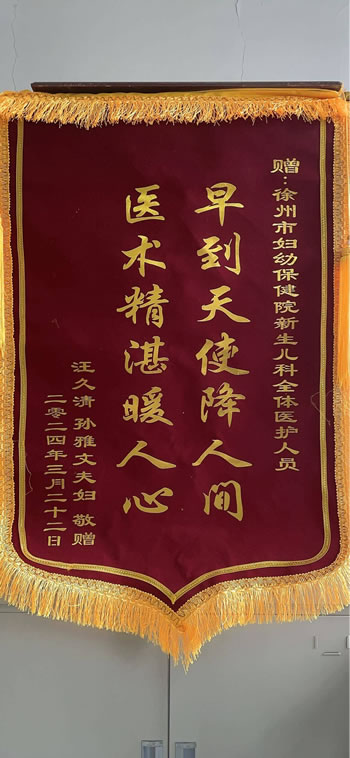 赠：徐州市妇幼保健院新生儿科全体医护人员
早到天使降人间
医术精湛暖人心
汪久清 孙雅文夫妇 敬赠
二零二四年三月二十二日